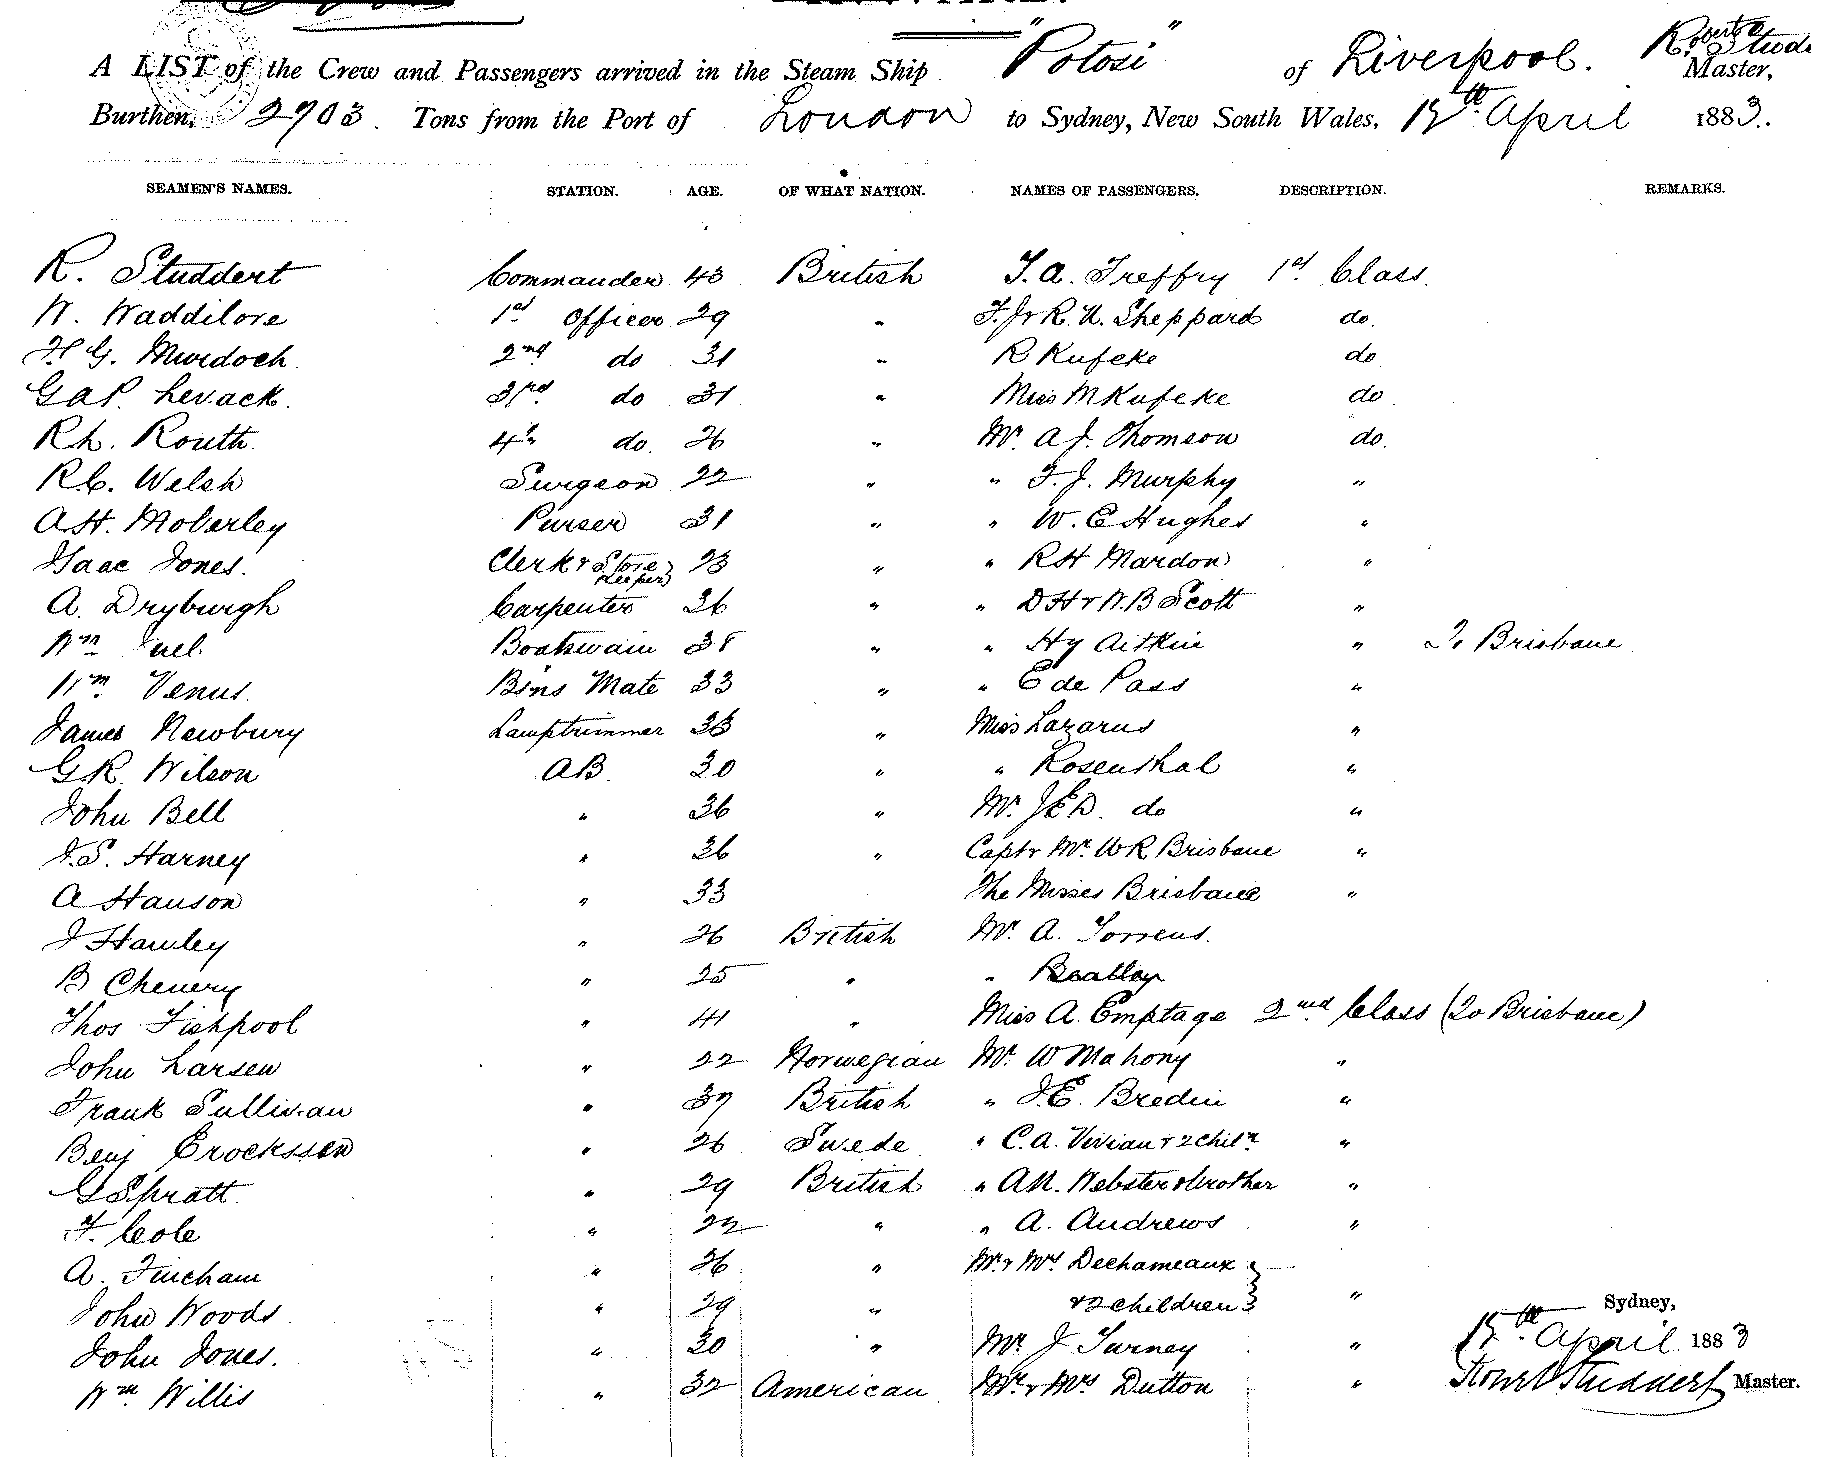 A LIST of the Crew and Passengers arrived in the Steam Ship "Potosi" of Liverpool. Master,
Burthen, 2703 Tons from the Port of London to Sydney, New South Wales, April 1883.
SEAMEN'S NAMES. STATION. AGE. OF WHAT NATION. NAMES OF PASSENGERS. DESCRIPTION. REMARKS.
R. Studdert Commander 43 British T. A. Treffry 1st Class
W. Waddilore 1st Officer 29 " F. J & R. U. Sheppard do.
H. G. Murdoch 2nd do 31 " R Kufeke do
G A P. Levack. 3rd do 31 " Miss M Kufeke do
R L. Routh. 4th do. 26 " Mr. A J. Thomson do.
R. C. Welsh Surgeon 22 " " F. J. Murphy "
A H. Moberley Purser 31 " " W. E Hughes "
Isaac Jones. Clerk & Store Keeper 23 " " R H Mardon "
A. Dryburgh Carpenter 26 " " D H & W. B Scott "
Wm Boatswain 38 " " Hy Aitkin " To Brisbane
Wm Venus. Bsns Mate 33 " " E de Pass "
James Newbury Lamptrimmer 33 " Miss Lazarus "
G R. Wilson AB. 30 " " Rosenthal "
John Bell " 36 " Mr. J E D. do "
J. S. Harney " 36 " Capt & Mr. W R Brisbane "
A Hanson " 33 The Misses Brisbane "
J Hawley " 26 British Mr. A. Torrens.
B Chenery " 25 " "
Thos Fishpool " 41 " Miss A. Emptage 2nd Class (To Brisbane)
John Larsen " 22 Norwegian Mr. W Mahony "
Frank Sullivan " 37 British " J. E. Bredin "
Benj Erockssen " 26 Swede " C. A. Vivian & 2 chiln "
G Spratt. " 29 British " A N. Webster & brother "
F. Cole " 22 " " A. Andrews "
A. Fincham " 26 " Mr & Mrs Dechameaux
John Woods " 29 " & 2 children " Sydney,
John Jones. " 30 " Mr J Turney " April 1883
Wm Willis " 32 American Mr & Mrs Dutton " Studdert Master.